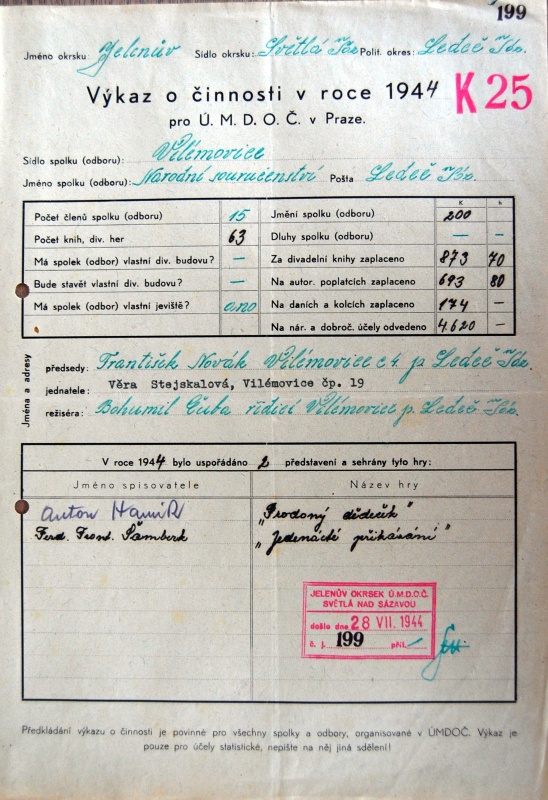 199
Jméno okrsku: Jelenův Sídlo okrsku: Světlá n/Sáz Polit. okres: Ledeč n/Sáz.
Výkaz o činnosti v roce 1944 K 25
pro Ú. M. D. O. Č. v Praze.
Sídlo spolku (odboru): Vilémovice
Jméno spolku (odboru): Národní souručenství Pošta Ledeč n/Sáz.
K h
Počet členů spolku (odboru) 15 Jmění spolku (odboru) 200
Počet knih, div. her 63 Dluhy spolku (odboru) — —
Má spolek (odbor) vlastní div. budovu? — Za divadelní knihy zaplaceno 873 70
Bude stavět vlastní div. budovu? — Na autor. poplatcích zaplaceno 693 80
Má spolek (odbor) vlastní jeviště? ano Na daních a kolcích zaplaceno 174 —
Na nár. a dobroč. účely odvedeno 4.620 —
Jména a adresy
předsedy: František Novák Vilémovice č 4. p Ledeč n/Sáz.
jednatele: Věra Stejskalová, Vilémovice čp. 19
režiséra: Bohumil Čuba řídící Vilémovice p. Ledeč n/Sáz.
V roce 1944 bylo uspořádáno 2 představení a sehrány tyto hry:
Jméno spisovatele Název hry
Anton Hamík „Prodaný dědeček"
Ferd. Frant. Šamberk „Jedenácté přikázání"
JELENŮV OKRSEK Ú.M.D.O.Č.
SVĚTLÁ NAD SÁZAVOU
došlo dne 28 VII. 1944
č. j. 199 příl. —
Předkládání výkazu o činnosti je povinné pro všechny spolky a odbory, organisované v ÚMDOČ. Výkaz je
pouze pro účely statistické, nepište na něj jiná sdělení!